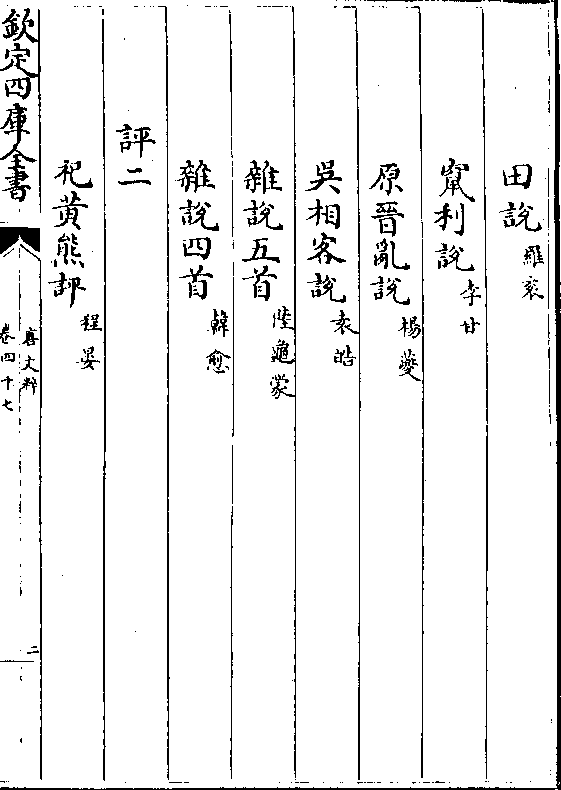 田說 羅衮
竄利說 李甘
原晉亂說 楊夔
吳相客說 袁皓
雜說五首 陸龜蒙
雜說四首 韓愈
評二
祀黃熊評 程晏
欽定四庫全書
唐文粹
卷四十七
二